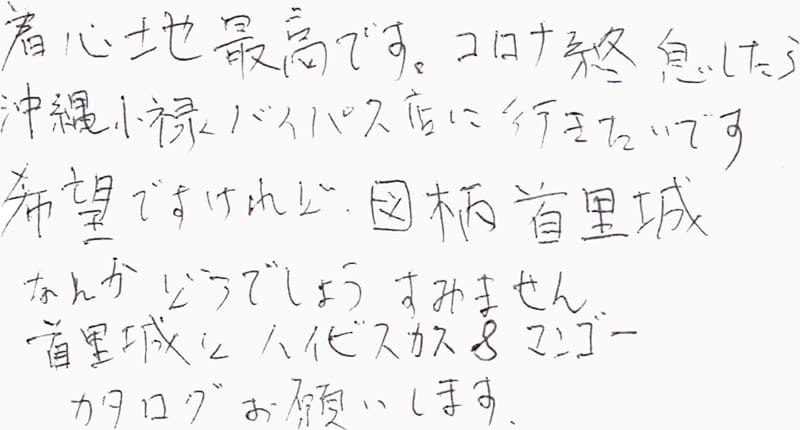 着心地最高です。コロナ終息したら
沖縄小禄バイパス店に行きたいです
希望ですけれど、図柄首里城
なんかどうでしょうすみません
首里城とハイビスカス&マンゴー
カタログお願いします.